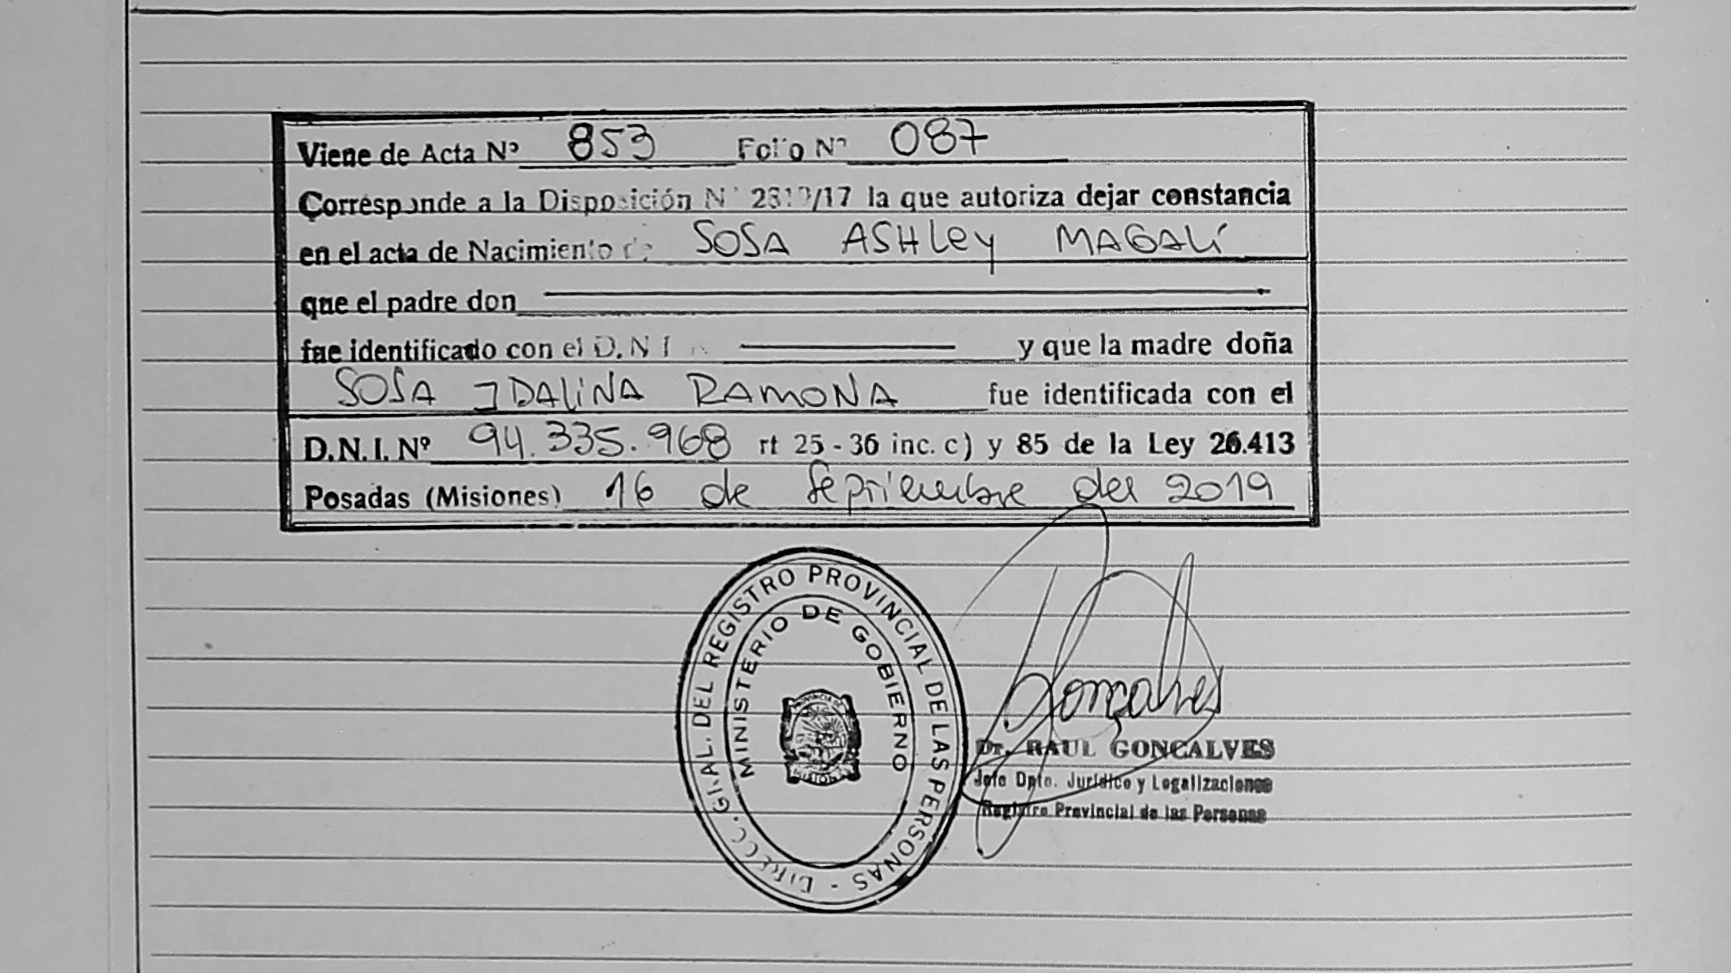 Viene de Acta Nº 853 Folio Nº 087
Corresponde a la Disposición Nº /17 la que autoriza dejar constancia
en el acta de Nacimiento de SOSA ASHLey MAGALí
que el padre don
fue identificado con el D.N.I y que la madre doña
SOSA IDALiNA RAMONA fue identificada con el
D.N.I. Nº 94.335.968 rt 25 - 36 inc. c) y 85 de la Ley 26.413
Posadas (Misiones) 16 de Septiembre del 2019
DIRECC. GRAL. DEL REGISTRO PROVINCIAL DE LAS PERSONAS -
MINISTERIO DE GOBIERNO
Gonçalves
Dr. RAUL GONCALVES
Jefe Dpto. Jurídico y Legalizaciones
Registro Provincial de las Personas